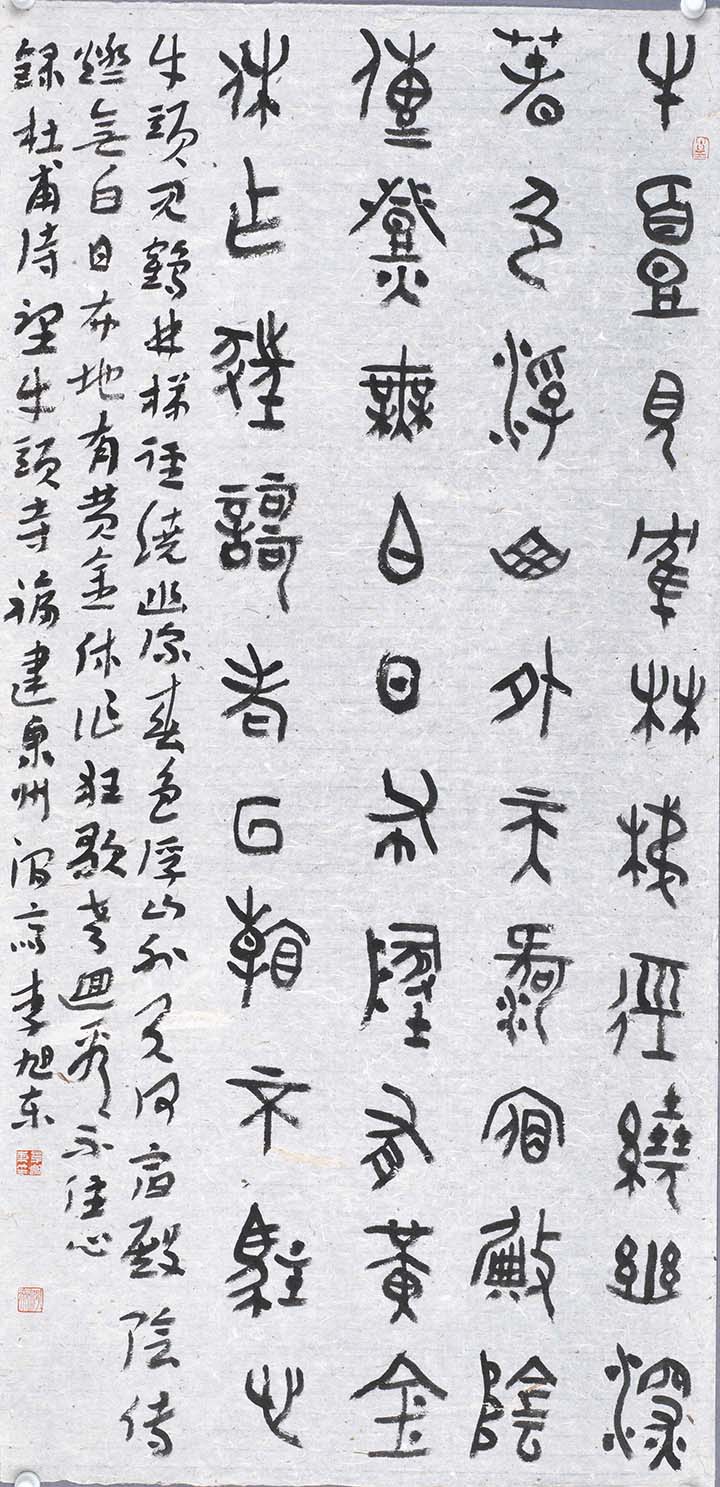 牛頭見隺林梯徑繞幽深
春色浮山外天河宿殿陰
傳燈無白日布地有黃金
休作狂歌老回看不駐心
牛頭見鶴林梯徑繞幽深春色浮山外天河宿殿陰傳
燈無白日布地有黃金休作狂歌老迴看不住心
錄杜甫詩望牛頭寺福建泉州李旭东